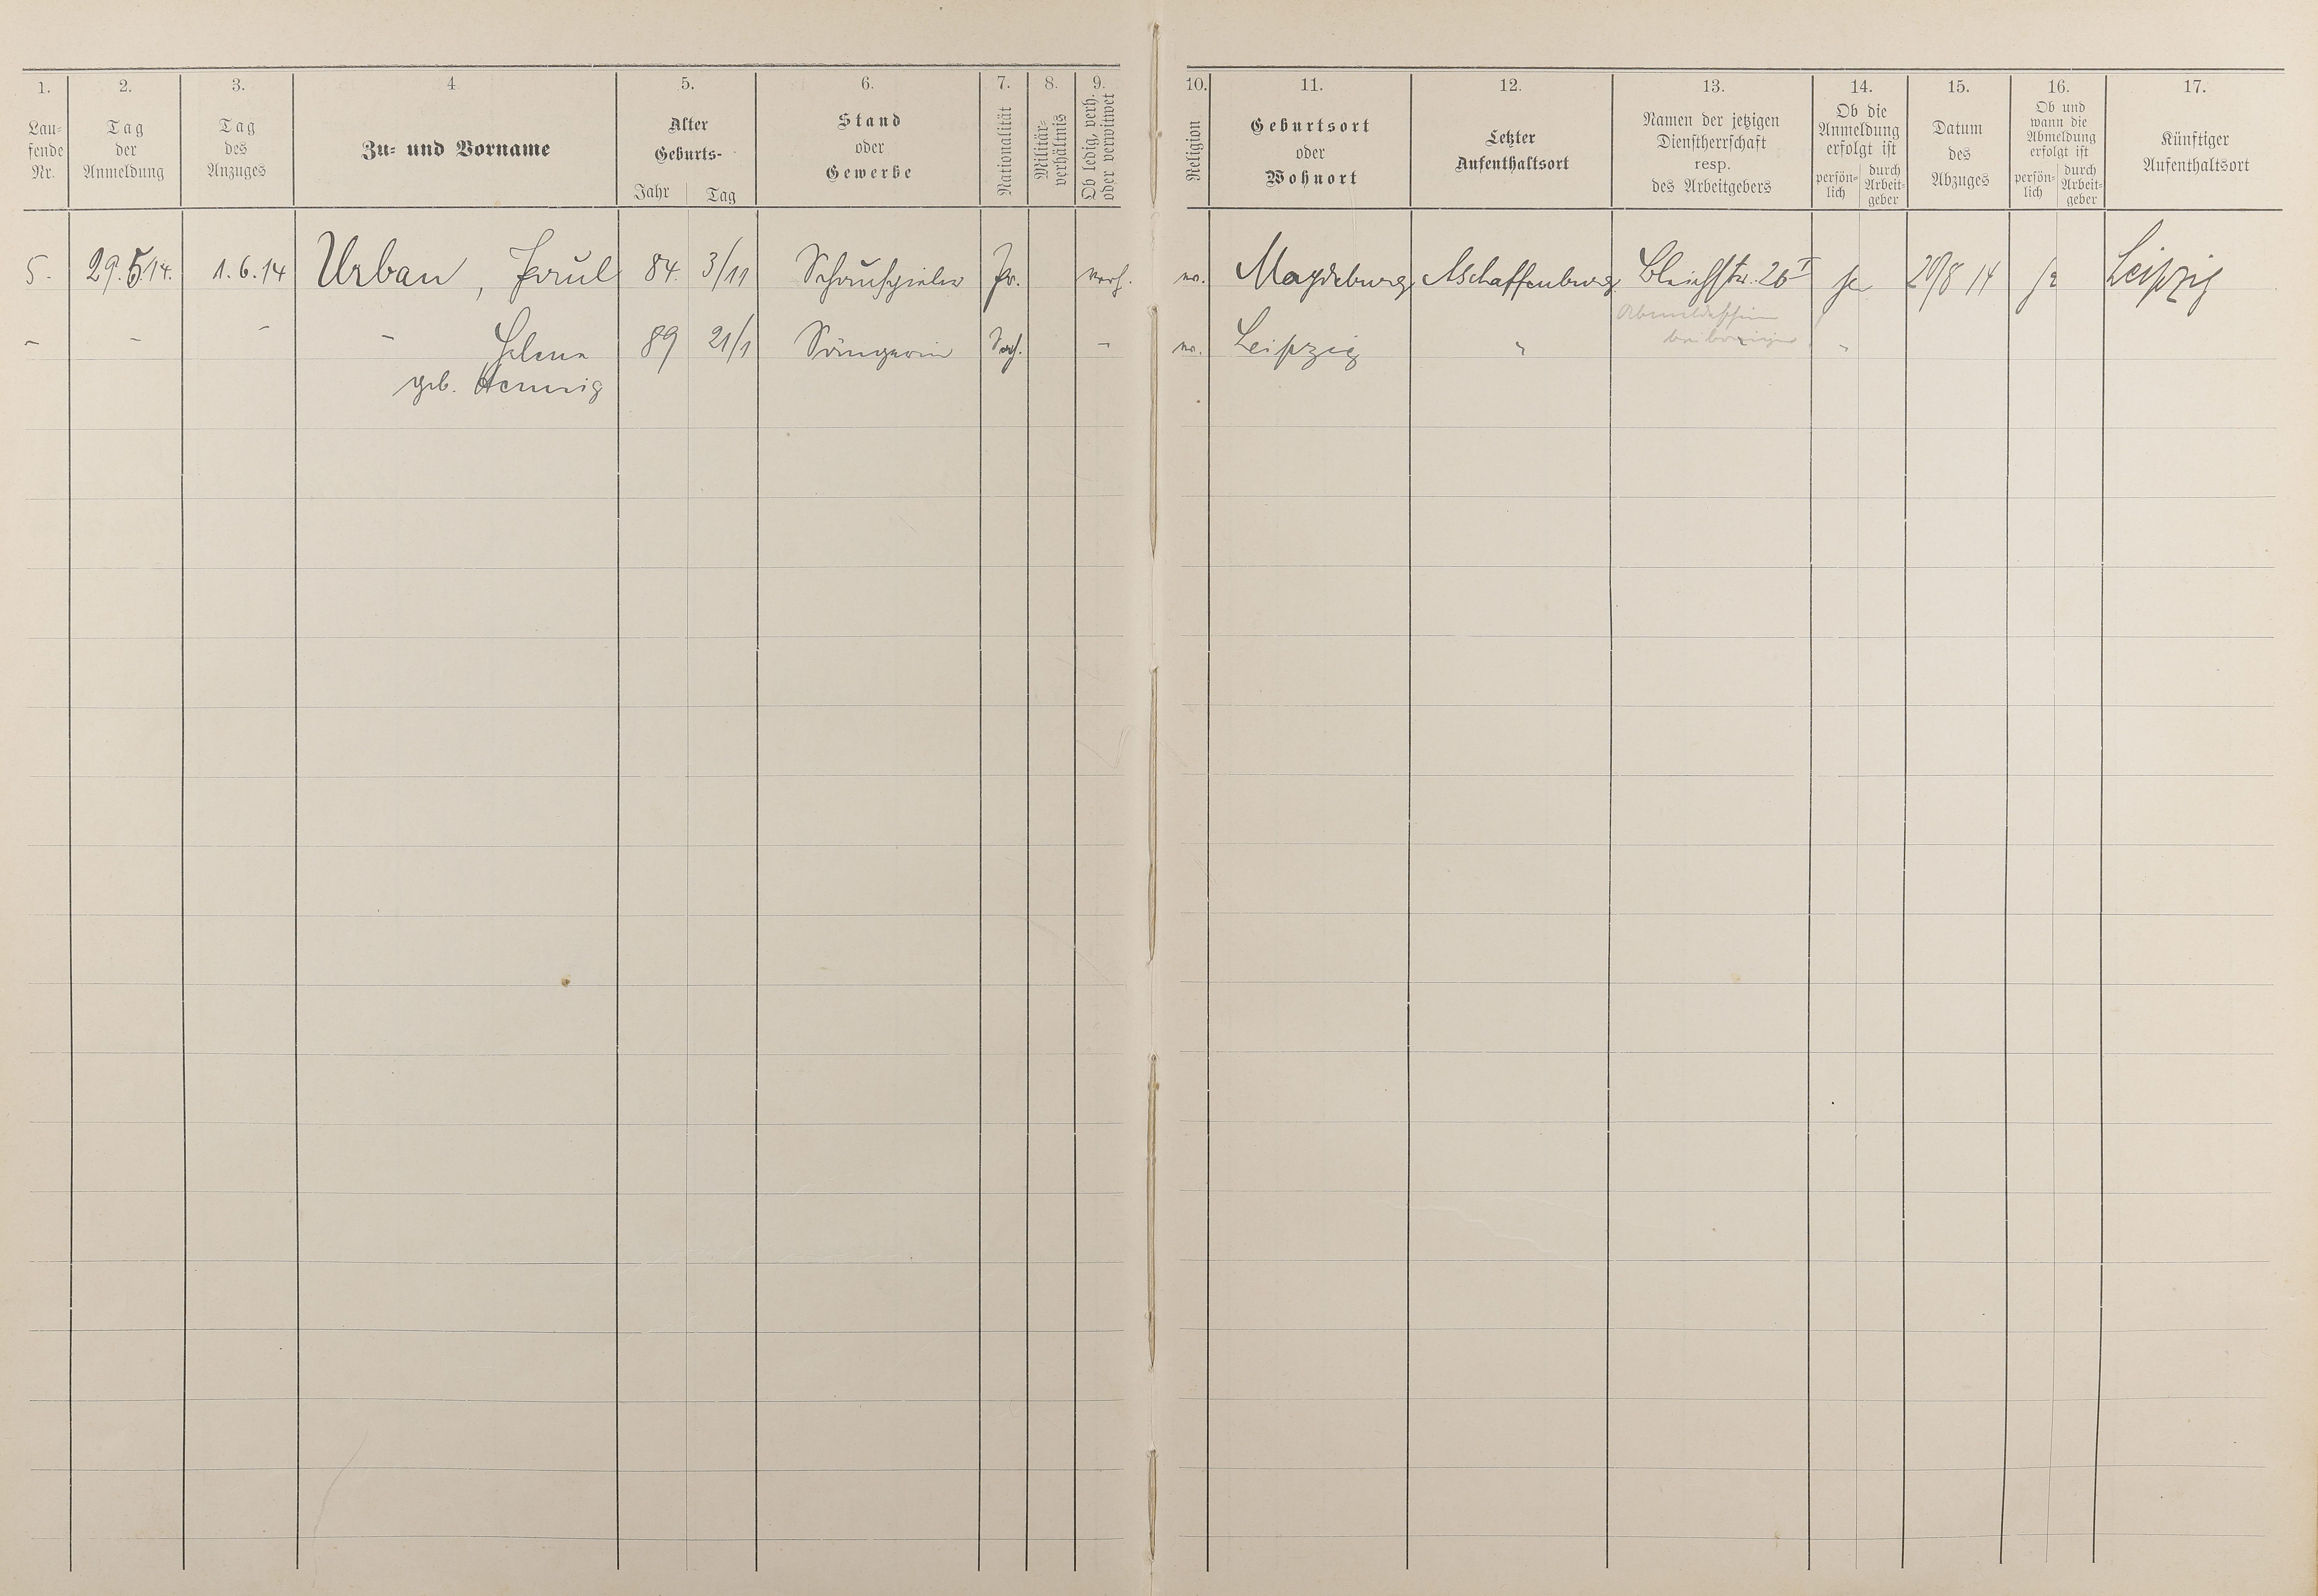 1. 2. 3. 4 5. 6. 7. 8. 9. 10. 11. 12. 13. 14. 15. 16. 17.
Lau-
fende
Nr.
Tag
der
Anmeldung
Tag
des
Anzuges
Zu- und Vorname
Alter
Geburts-
Jahr Tag
Stand
oder
Gewerbe
Nationalität
Militär-
verhältnis
Ob ledig, verh.
oder verwitwet
Religion
Geburtsort
oder
Wohnort
Letzter
Aufenthaltsort
Namen der jetzigen
Dienstherrschaft
resp.
des Arbeitgebers
Ob die
Anmeldung
erfolgt ist
persön-
lich
durch
Arbeit-
geber
Datum
des
Abzuges
Ob und
wann die
Abmeldung
erfolgt ist
persön-
lich
durch
Arbeit-
geber
Künftiger
Aufenthaltsort
5. 29.5.14. 1.6.14 Urban, Paul 84. 3/11 Schauspieler Pr. verh. ev. Magdeburg Aschaffenburg Bleichstr. 26 I ja 20/8 14 ja Leipzig
Abmeldeschein
- - - - Helena 89 21/1 Sängerin Sachs. - ev. Leipzig " "
geb. Hennig